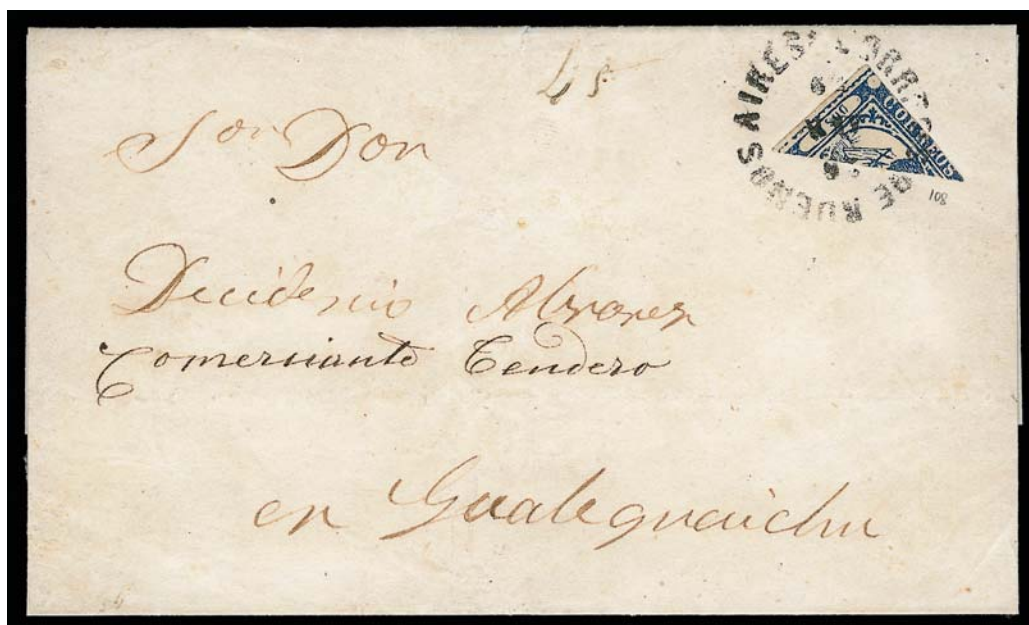 45
CORREOS DE BUENOS AIRES
CORREOS
Sor Don
Decidenio Alvarez
Comerciante Tendero
en Gualeguaichu